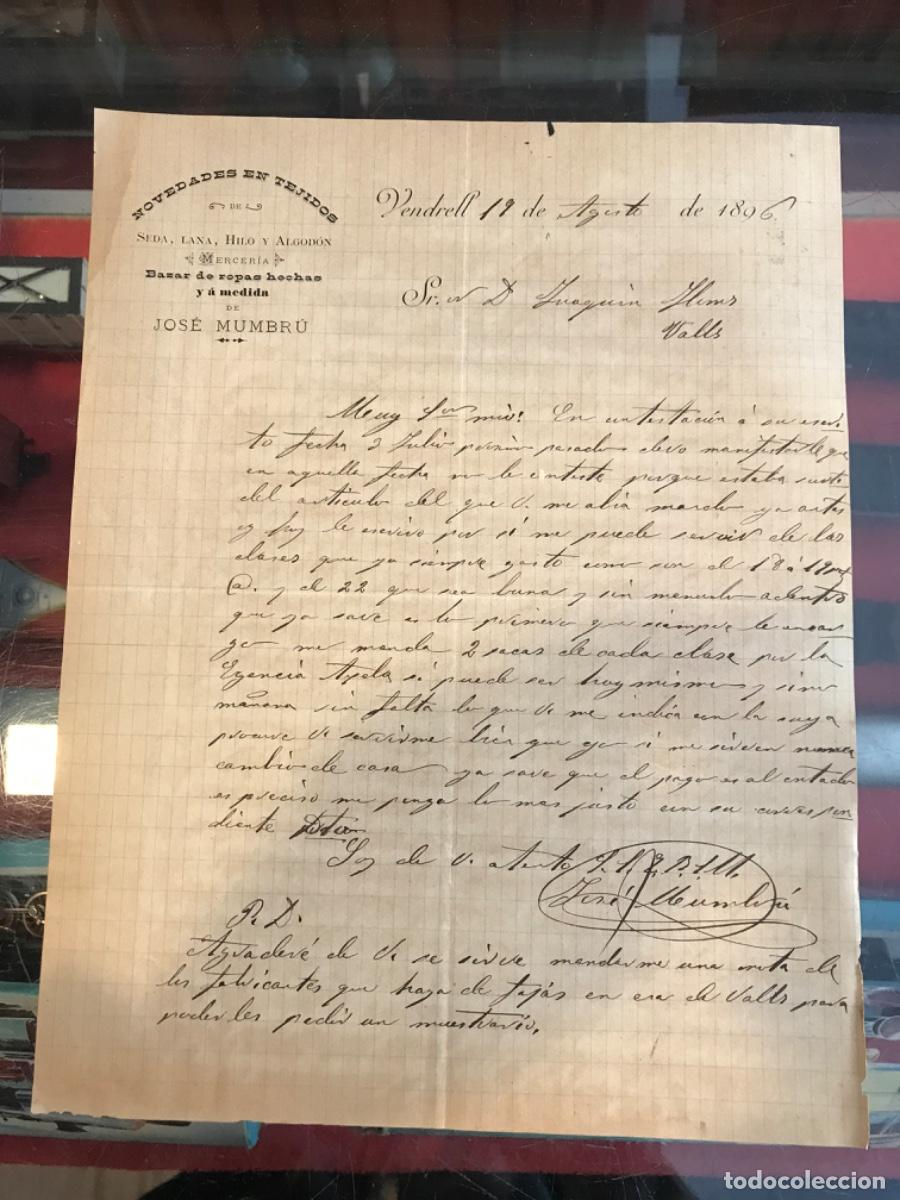 NOVEDADES EN TEJIDOS
DE
SEDA, LANA, HILO Y ALGODÓN
MERCERÍA
Bazar de ropas hechas
y á medida
DE
JOSÉ MUMBRÚ
Vendrell 19 de Agosto de 1896.
Sr. D Joaquin
Valls
Muy Sor mio: En contestación á su escri-
to fecha 2 Julio pasado devo manifestarle que
en aquella fecha no le conteste porque estaba surti
del articulo del que V. me abia mando ya antes
y hoy le escrivo por si me puede servir de las
clases que ya siempre gasto como son el 18 á 19
@. y el 22 que sea buna y sin menudo adentro
que ya save es lo primero que siempre le encar
go me manda 2 sacas de cada clase por la
Egencia Ayela si puede ser hoy mismo y sino
mañana sin falta lo que V. me indica con la suya
procure V. servirme bien que yo si me sirven nunca
cambio de casa ya save que el pago es al contado
es preciso me ponga lo mas justo con su corespon
diente
Soy de V. atento S. S. Q. B. S. M.
José Mumbrú
P. D.
Agradeceré de V. se sirve mandarme una nota de
los fabricantes que haya de fajás en esa de Valls para
poderles pedir un muestrario.
todocoleccion